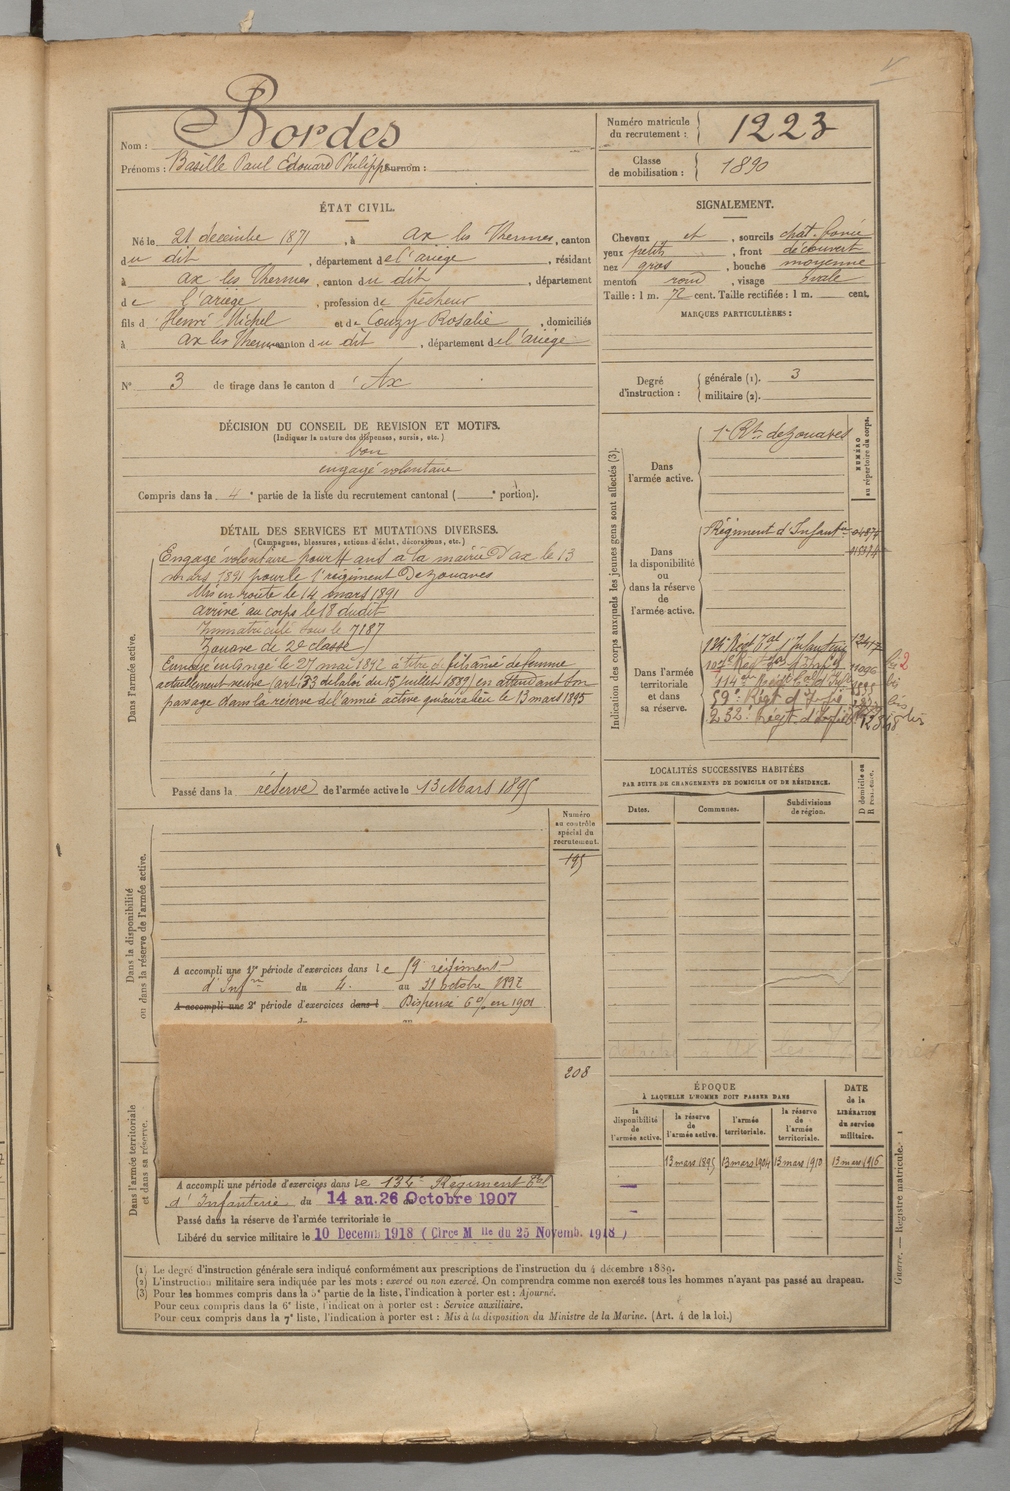 Nom : Bordes
Prénoms : Basille Paul Edouard Philippe Surnom :
Numéro matricule du recrutement : 1223
Classe de mobilisation : 1890
ÉTAT CIVIL.
Né le 21 decembre 1871, à ax les Thermes, canton
du dit, département de l'ariège, résidant
à ax les Thermes, canton du dit, département
de l'ariège, profession de pecheur
fils d' Henri Michel et de Couzy Rosalie, domiciliés
à ax les Thermes canton du dit, département de l'ariège
N° 3 de tirage dans le canton d' Ax
SIGNALEMENT.
Cheveux et, sourcils chat. foncé
yeux petits, front découvert
nez gros, bouche moyenne
menton rond, visage ovale
Taille : 1 m. 72 cent. Taille rectifiée : 1 m. cent.
MARQUES PARTICULIÈRES :
Degré d'instruction : générale (1). 3
militaire (2).
DÉCISION DU CONSEIL DE REVISION ET MOTIFS.
(Indiquer la nature des dispenses, sursis, etc.)
bon
engagé volontaire
Compris dans la 4e partie de la liste du recrutement cantonal ( e portion).
DÉTAIL DES SERVICES ET MUTATIONS DIVERSES.
(Campagnes, blessures, actions d'éclat, décorations, etc.)
Dans l'armée active.
Engagé volontaire pour 4 ans a la mairie D'ax le 13
mars 1891 pour le 1er régiment De zouaves
Mis en route le 14 mars 1891
arrivé au corps le 18 dudit
Immatriculé sous le 7187
Zouave de 2e classe
Envoyé en congé le 27 mai 1892 à titre de fils aîné de femme
actuellement veuve (art. 33 de la loi du 15 juillet 1889) en attendant son
passage dans la réserve de l'armée active qui aura lieu le 13 mars 1895
Passé dans la réserve de l'armée active le 13 Mars 1895
Indication des corps auxquels les jeunes gens sont affectés (3).
NUMÉRO au répertoire du corps.
Dans l'armée active.
1er Rt de zouaves
Dans la disponibilité ou dans la réserve de l'armée active.
Régiment d'Infanterie
Dans l'armée territoriale et dans sa réserve.
134e Regt Tal d'Infanterie
114e
59e Régt d'Infie
232e Régt d'Infie
LOCALITÉS SUCCESSIVES HABITÉES
PAR SUITE DE CHANGEMENTS DE DOMICILE OU DE RÉSIDENCE.
Dates. Communes. Subdivisions de région.
D domicile ou R résidence.
Dans la disponibilité ou dans la réserve de l'armée active.
Numéro au contrôle spécial du recrutement.
195
A accompli une 1re période d'exercices dans le 59 régiment
d'Infrie du 4 au 31 octobre 1897
A accompli une 2e période d'exercices dans l Dispensé en 1901
208
Dans l'armée territoriale et dans sa réserve.
A accompli une période d'exercices dans le 134e Régiment Tal
d'Infanterie du 14 au 26 Octobre 1907
Passé dans la réserve de l'armée territoriale le
Libéré du service militaire le 10 Decemb 1918 ( Circe M lle du 25 Novemb. 1918 )
ÉPOQUE
À LAQUELLE L'HOMME DOIT PASSER DANS
la disponibilité de l'armée active.
la réserve de l'armée active.
l'armée territoriale.
la réserve de l'armée territoriale.
DATE de la LIBÉRATION du service militaire.
13 mars 1895 13 mars 1904 13 mars 1910 13 mars 1916
(1) Le degré d'instruction générale sera indiqué conformément aux prescriptions de l'instruction du 4 décembre 1889.
(2) L'instruction militaire sera indiquée par les mots : exercé ou non exercé. On comprendra comme non exercés tous les hommes n'ayant pas passé au drapeau.
(3) Pour les hommes compris dans la 5e partie de la liste, l'indication à porter est : Ajourné.
Pour ceux compris dans la 6e liste, l'indication à porter est : Service auxiliaire.
Pour ceux compris dans la 7e liste, l'indication à porter est : Mis à la disposition du Ministre de la Marine. (Art. 4 de la loi.)
Guerre. — Registre matricule. 1